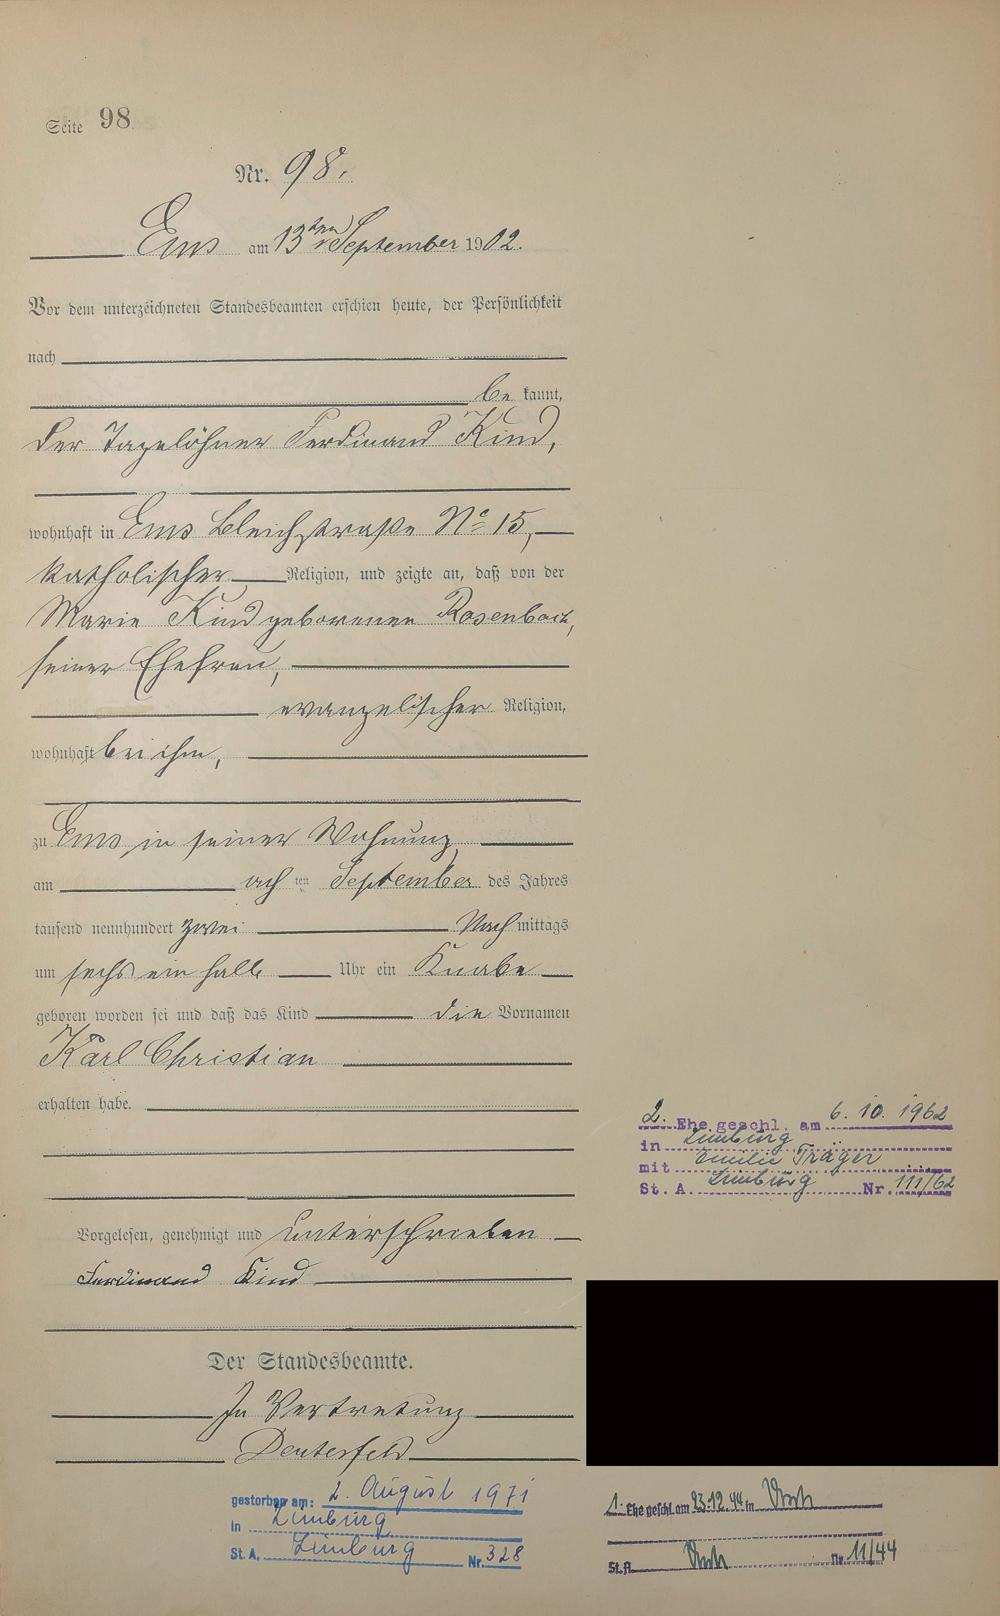 Seite 98
Nr. 98.
Ems am 13ten September 1902.
Vor dem unterzeichneten Standesbeamten erschien heute, der Persönlichkeit
nach
be kannt,
der Tagelöhner Ferdinand Kind,
wohnhaft in Ems Bleichstraße No 15,
katholischer Religion, und zeigte an, daß von der
Marie Kind geborenen Rosenbach,
seiner Ehefrau,
evangelischer Religion,
wohnhaft bei ihm,
zu Ems in seiner Wohnung
am ach ten September des Jahres
tausend neunhundert zwei Nach mittags
um sechs ein halb Uhr ein Knabe
geboren worden sei und daß das Kind die Vornamen
Karl Christian
erhalten habe.
Vorgelesen, genehmigt und unterschrieben
Ferdinand Kind
Der Standesbeamte.
In Vertretung
2. Ehe geschl. am 6. 10. 1962
in Limburg
mit Emilie Träger
St. A. Limburg Nr. 111/62
gestorben am: 2. August 1971
in Limburg
St. A. Limburg Nr. 328
1. Ehe geschl. am 23.12.44 in
St.A. Nr. 11/44